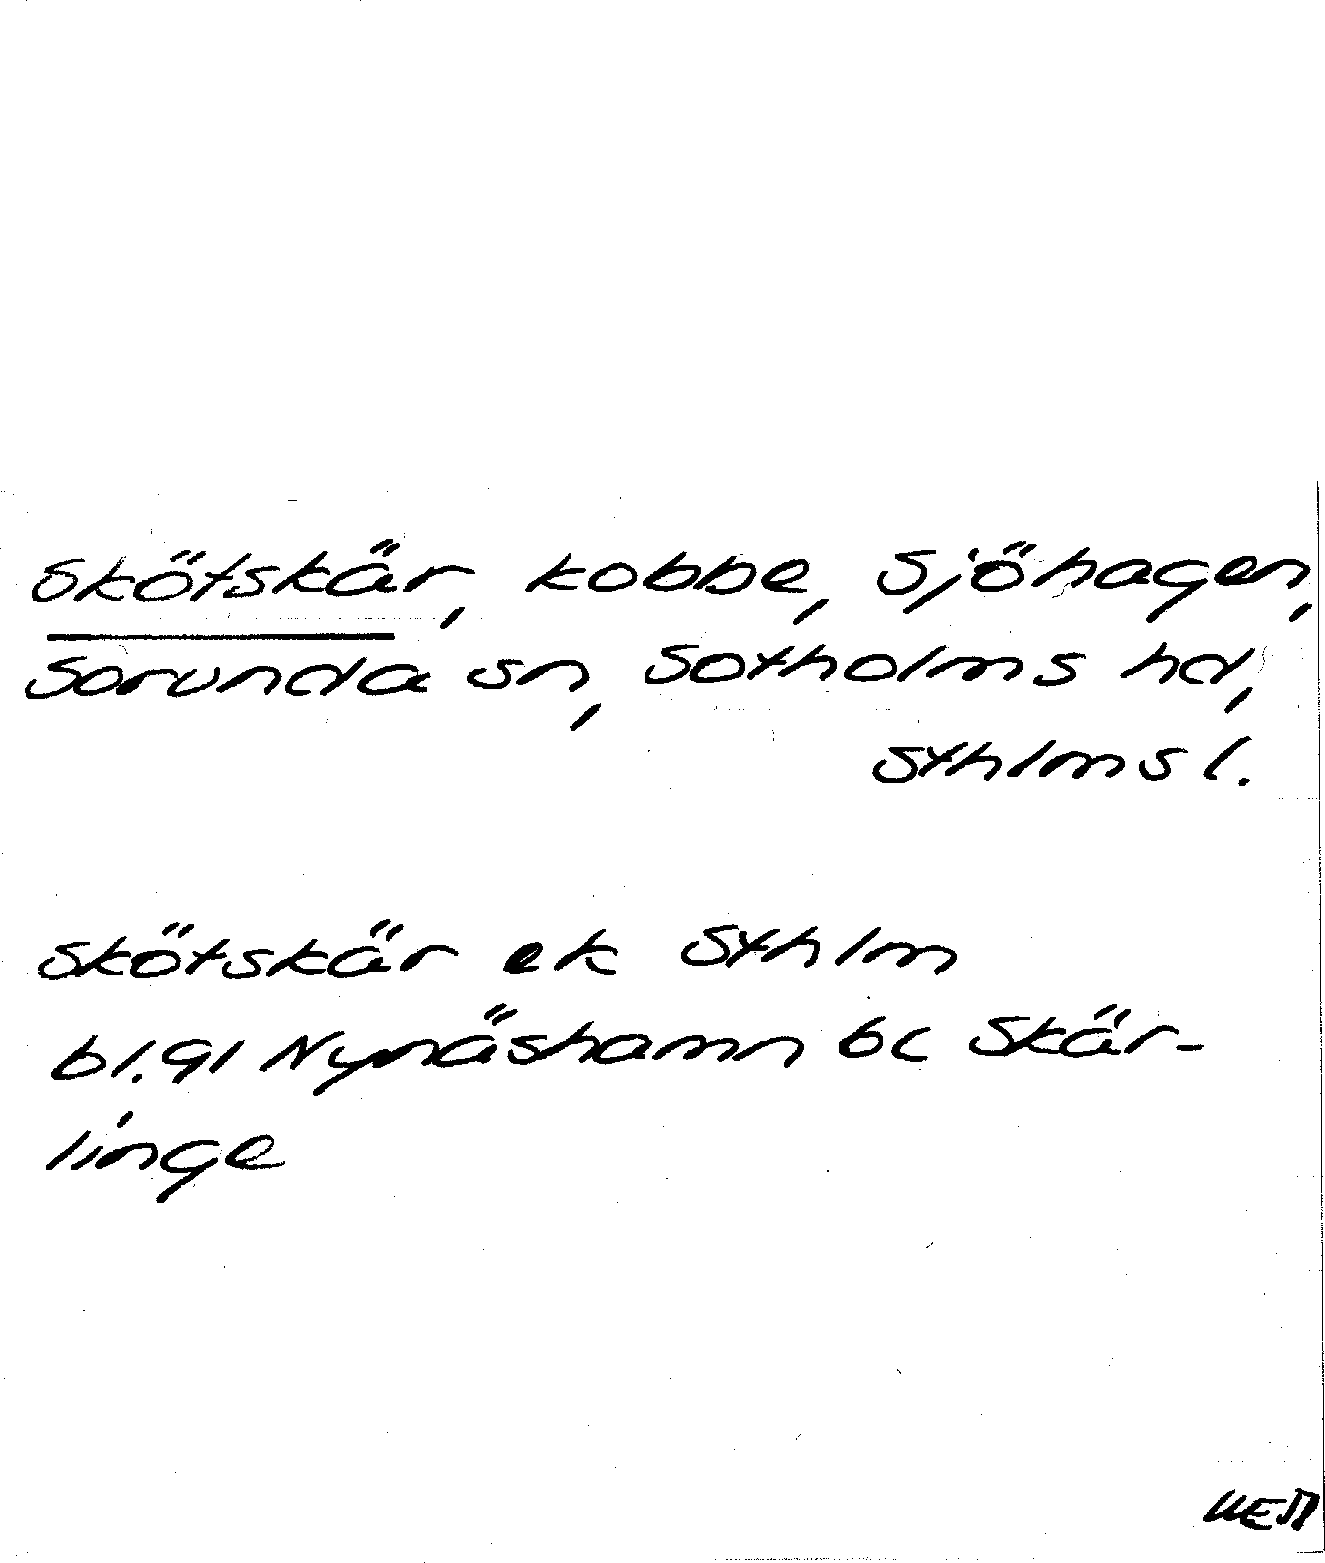 Skötskär, kobbe, Sjöhagen,
Sorunda sn, Sotholms hd,
Sthlms l.
Skötskär ek Sthlm
bl.91 Nynäshamn bc Skär-
linge